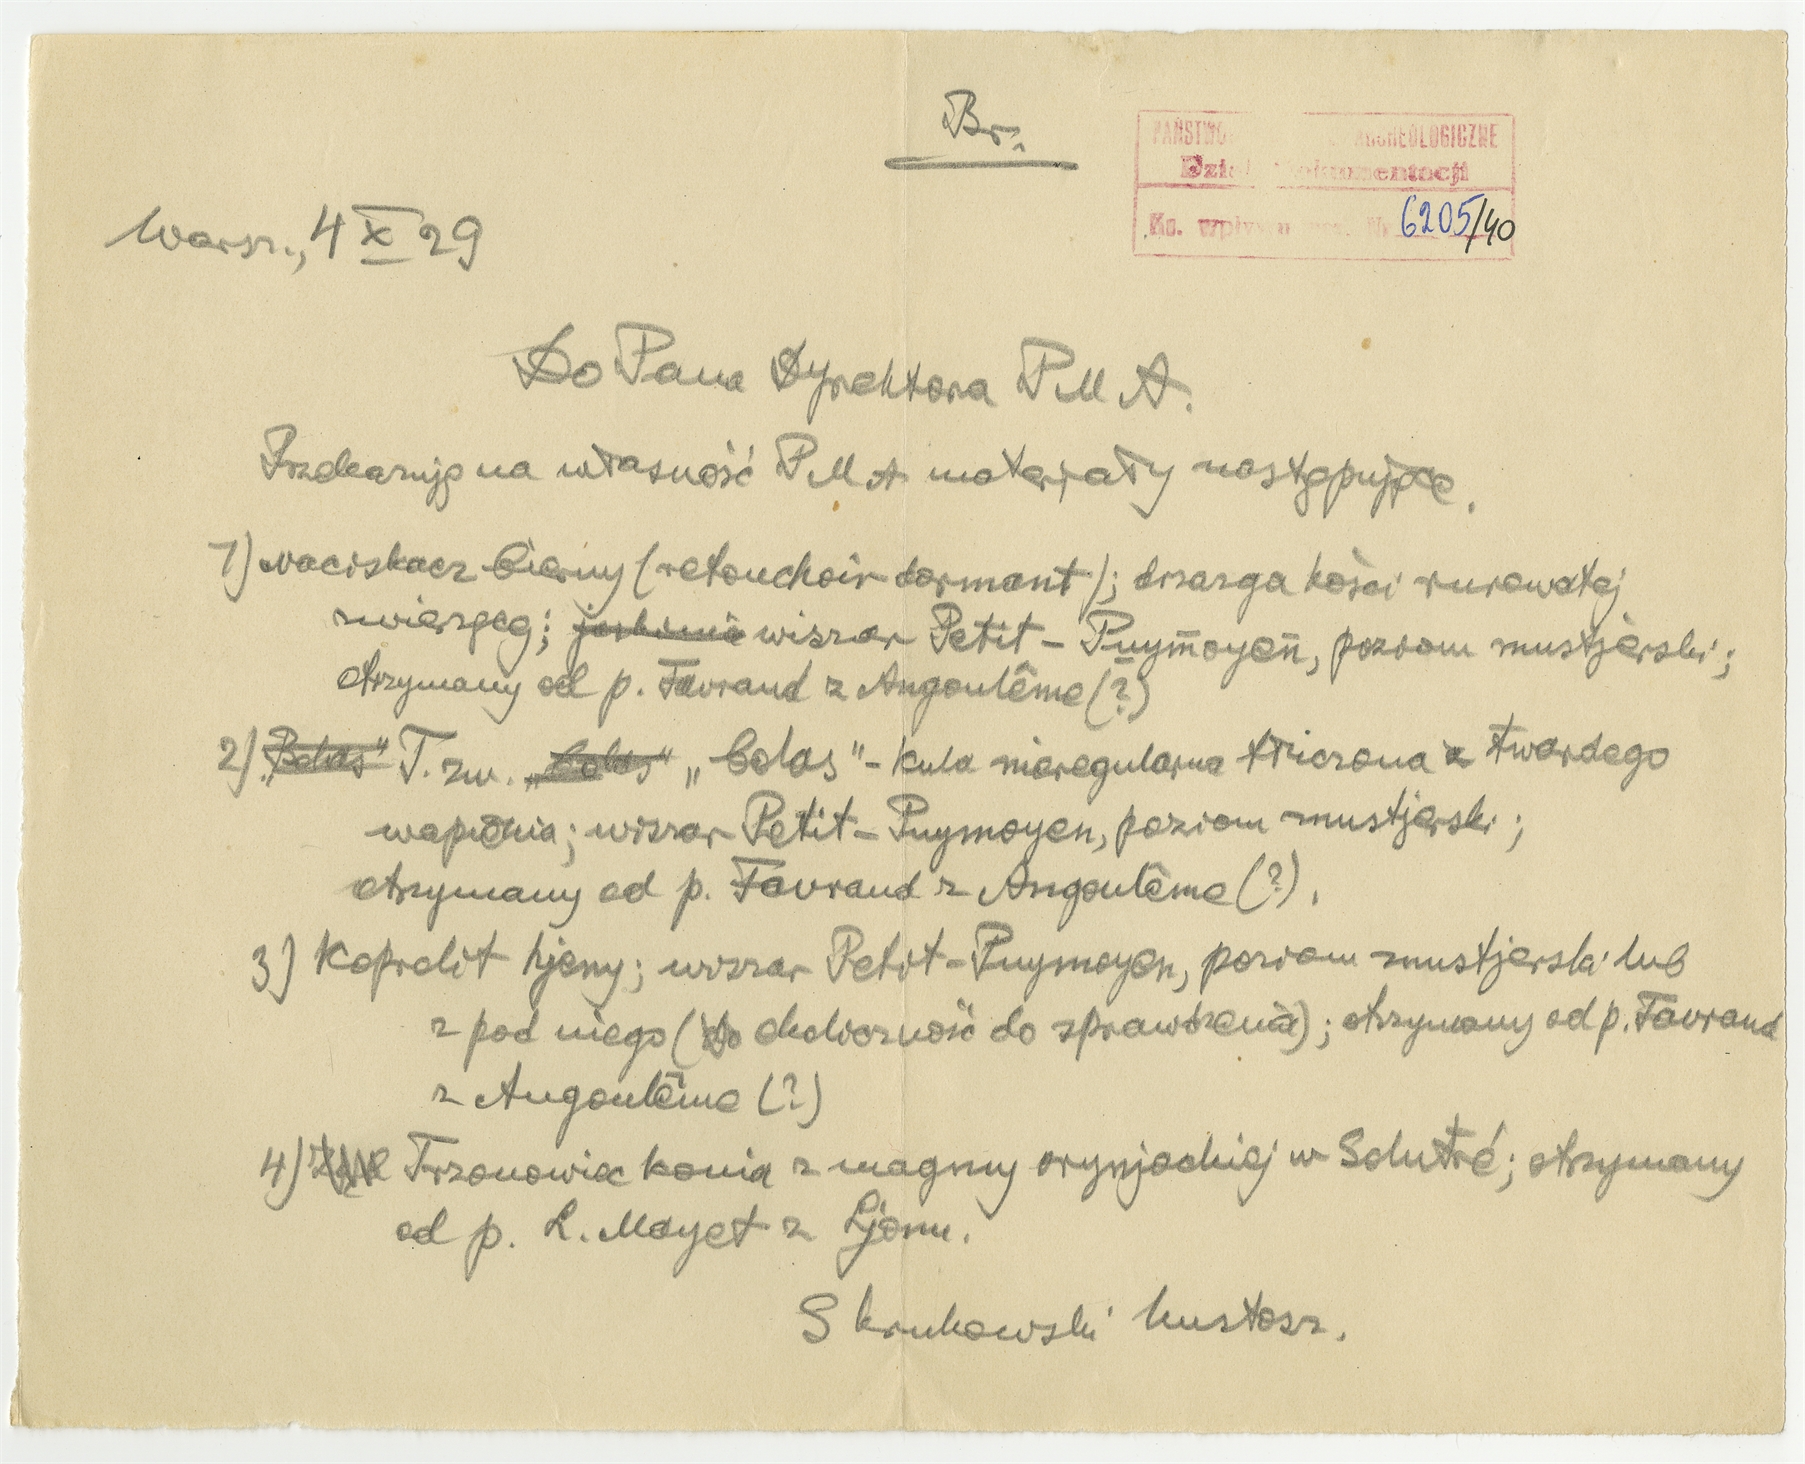 Br.
PAŃSTWO ARCHEOLOGICZNE
Dział Dokumentacji
Ks. wpływu Nr 6205/40
Warsz., 4 X 29
Do Pana Dyrektora P M A.
Przekazuję na własność P M A materjały następujące.
1) naciskacz bierny (retouchoir dormant); drzazga kości rurowatej
zwierzęcej; jaskinia wiszar Petit-Puymoyen, poziom mustjerski;
otrzymany od p. Favraud z Angoulême (?)
2) „Bolas" T. zw. „bolas" „bolas" - kula nieregularna tłuczona z twardego
wapienia; wiszar Petit-Puymoyen, poziom mustjerski;
otrzymany od p. Favraud z Angoulême (?).
3) Koprolit hjeny; wiszar Petit-Puymoyen, poziom mustjerski lub
z pod niego (do okoliczność do sprawdzenia); otrzymany od p. Favraud
z Angoulême (?)
4) Trzonowiec konia z magmy orynjackiej w Solutré; otrzymany
od p. L. Mayet z Ljonu.
S Krukowski kustosz.